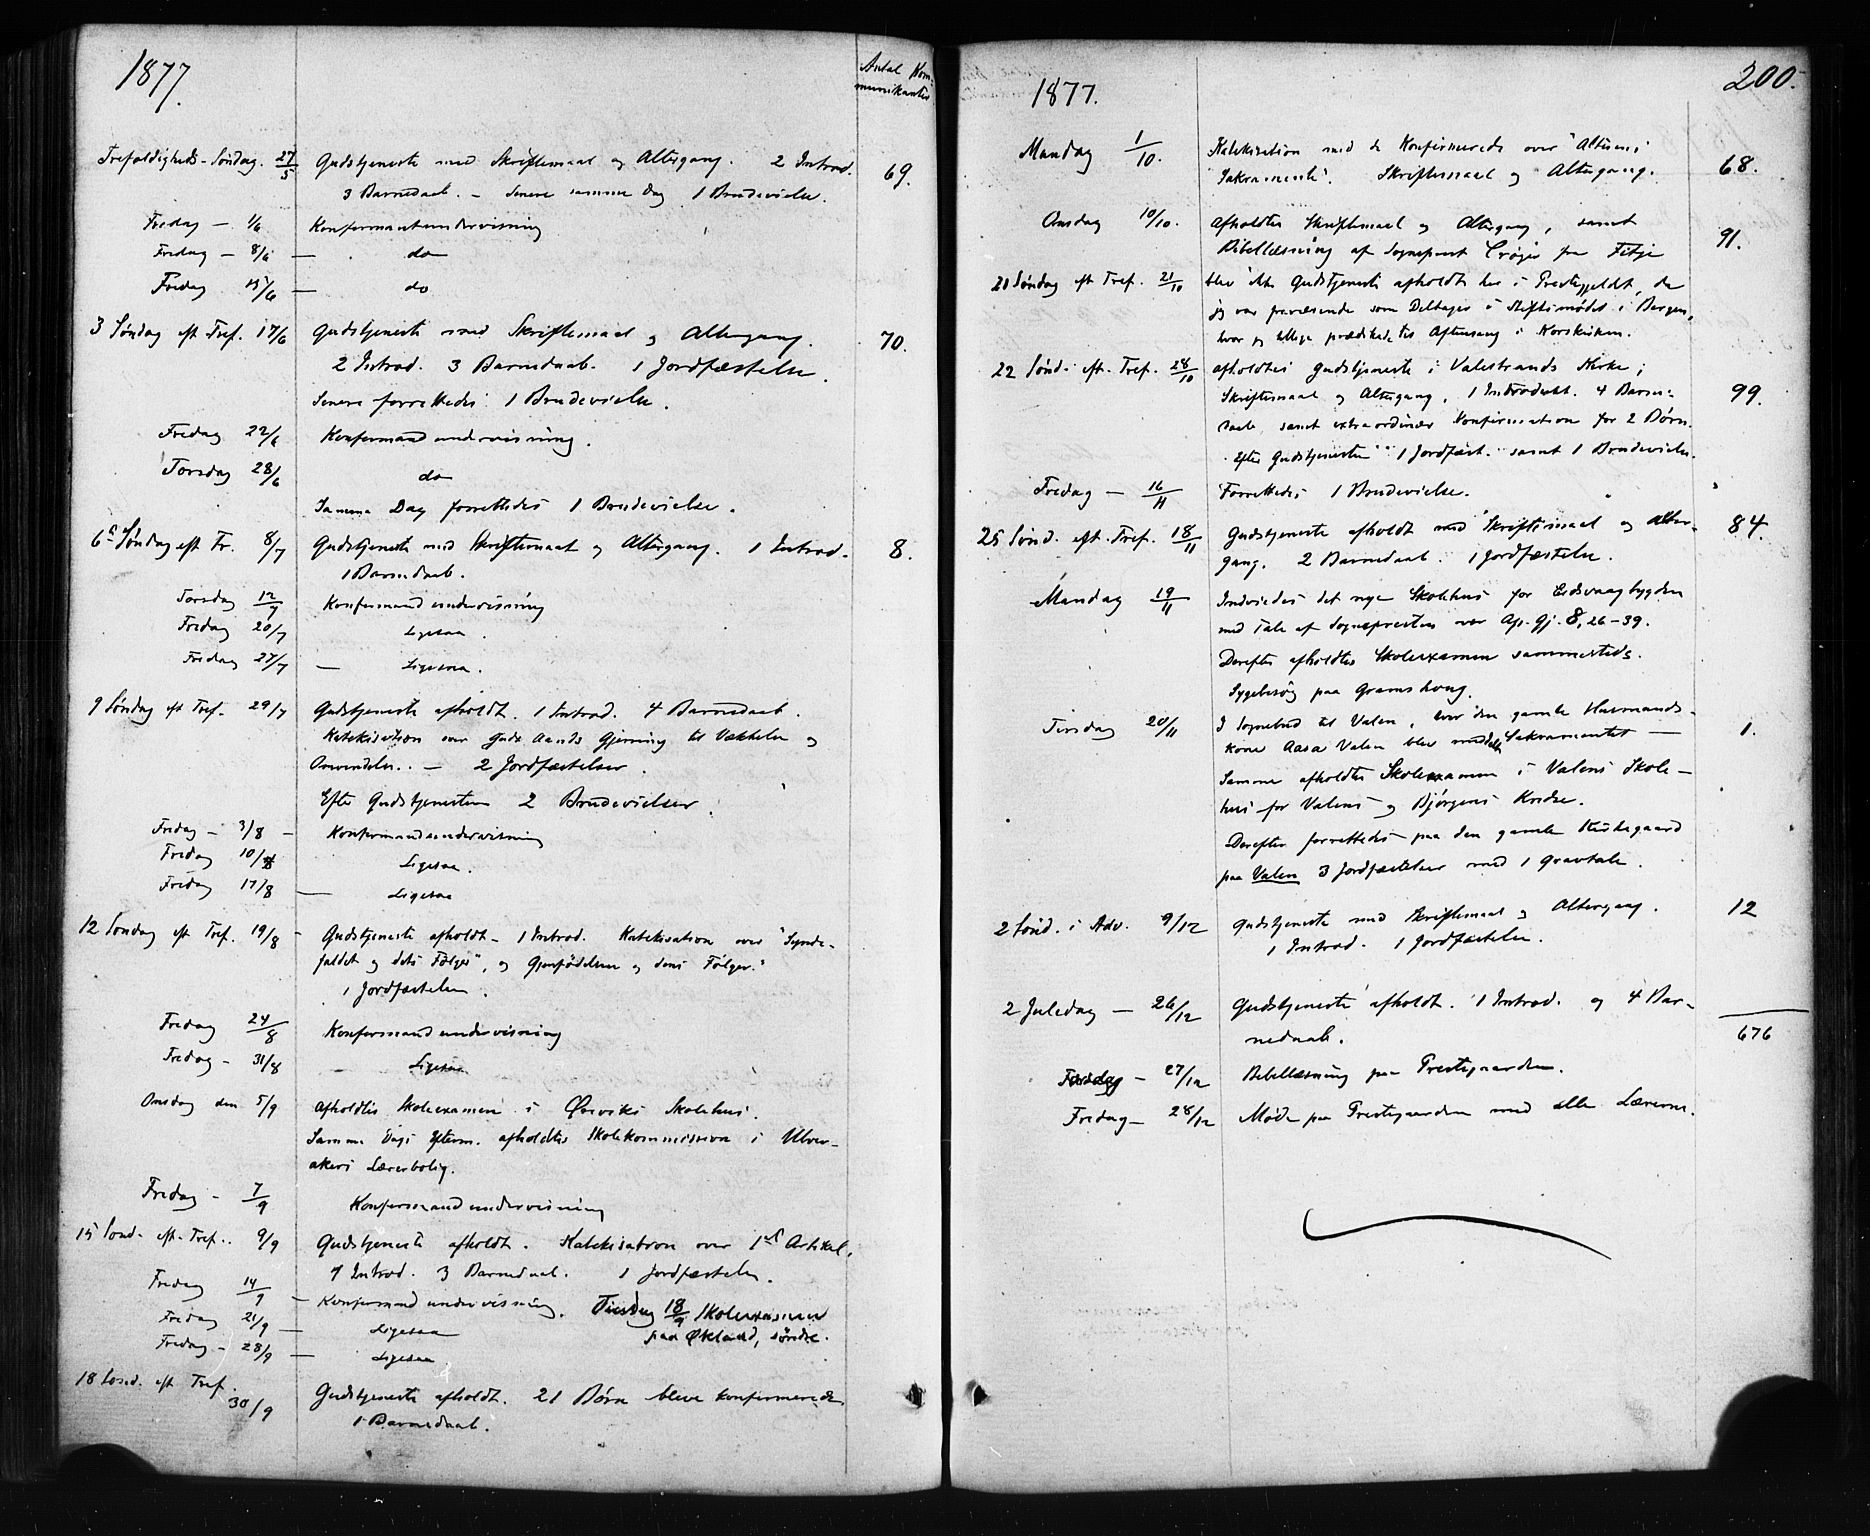 1877.
Antal Kom-
munikanter
Trefoldigheds-Søndag. 27/5 Gudstjeneste med Skriftemaal og Altergang. 2 Introd. 69.
3 Barnedaab. – Senere samme Dag 1 Brudevielse.
Fredag – 1/6 Konfirmantundervisning
Fredag – 8/6 — do
Fredag 15/6 — do
3 Søndag eft Tref. 17/6 Gudstjeneste med Skriftemaal og Altergang. 70.
2 Introd. 3 Barnedaab. 1 Jordfæstelse.
Senere forrettedes 1 Brudevielse.
Fredag 22/6 Konfirmandundervisning.
Torsdag 28/6 do
Samme Dag forrettedes 1 Brudevielse.
6te Søndag eft Tr. 8/7 Gudstjeneste med Skriftemaal og Altergang. 1 Introd. 8.
1 Barnedaab.
Torsdag 12/7 Konfirmandundervisning
Fredag 20/7 Ligesaa.
Fredag 27/7 — Ligesaa.
9 Søndag eft Tref. 29/7 Gudstjeneste afholdt. 1 Introd. 4 Barnedaab.
Katekisation over Guds Aands Gjerning til Vækkelse og
Omvendelse. – 2 Jordfæstelser.
Efter Gudstjenesten 2 Brudevielser.
Fredag – 3/8 – Konfirmandundervisning
Fredag 10/8 Ligesaa.
Fredag 17/8 — Ligesaa
12 Søndag eft Tref. 19/8 – Gudstjeneste afholdt – 1 Introd. Katekisation over "Synde-
faldet og dets Følger", og Gjenfødelsen og dens Følger."
1 Jordfæstelse.
Fredag 24/8 Konfirmandundervisning
Fredag – 31/8 Ligesaa
Onsdag den 5/9 Afholdtes Skoleexamen i Ørviks Skolehus.
Samme Dags Efterm. afholdtes Skolekommission i Ulver-
akers Lærerbolig.
Fredag – 7/9 Konfirmandundervisning
15 Sønd. eft. Tref. 9/9 Gudstjeneste afholdt. Katekisation over 1ste Artikel.
1 Introd. 3 Barnedaab. 1 Jordfæstelse.
Fredag 14/9 – Konfirmandundervisning. Tirsdag 18/9 Skoleexamen
Fredag 21/9 — Ligesaa paa Økland, søndre.
Fredag – 28/9 — Ligesaa
18 Sønd. eft Tref.
30/9 Gudstjeneste afholdt. 21 Børn bleve konfirmerede
1 Barnedaab.
1877.
200.
Mandag 1/10. Katekisation med de Konfirmerede over "Alterens
Sakramente". Skriftemaal og Altergang. 68.
Onsdag 10/10. Afholdtes Skriftemaal og Altergang, samt
Bibellæsning af Sogneprest Crøger fra Fitje 91.
21 Søndag eft Tref. 21/10 blev ikke Gudstjeneste afholdt her i Prestegjeldet, da
jeg var fraværende som Deltager i Stiftsmødet i Bergen,
hvor jeg tillige prædikede til Aftensang i Korskirken.
22 Sønd. eft. Tref. 28/10 afholdtes Gudstjeneste i Valestrands Kirke;
Skriftemaal og Altergang, 1 Introdukt. 4 Barne- 99.
daab, samt extraordinær Konfirmation for 2 Børn.
Efter Gudstjenesten 1 Jordfæst. samt 1 Brudevielse.
Fredag – 16/11 Forrettedes 1 Brudevielse.
25 Sønd. eft. Tref. 18/11 Gudstjeneste afholdt med Skriftemaal og Alter- 84.
gang. 2 Barnedaab. 1 Jordfæstelse.
Mandag 19/11 Indviedes det nye Skolehus for Eidsvaagbygden
med Tale af Sognepresten over Ap. Gj. 8, 26–39.
Derefter afholdtes Skoleexamen sammesteds.
Sygebesøg paa Gramshoug.
Tirsdag 20/11 I Sognebud til Valen, hvor den gamle Husmands-
kone Aasa Valen blev meddelt Sakramentet — 1.
Samme afholdtes Skoleexamen i Valens Skole-
hus for Valens og Bjørgens Kredse.
Derefter forrettedes paa den gamle Kirkegaard
paa Valen 3 Jordfæstelser med 1 Gravtale.
2 Sønd. i Adv. 9/12 Gudstjeneste med Skriftemaal og Altergang. 12
1 Introd. 1 Jordfæstelse.
2 Juledag — 26/12 Gudstjeneste afholdt. 1 Introd. og 4 Bar-
nedaab. 676
Torsdag – 27/12 Bibellæsning paa Prestegaarden.
Fredag – 28/12 Møde paa Prestegaarden med alle Lærerne.